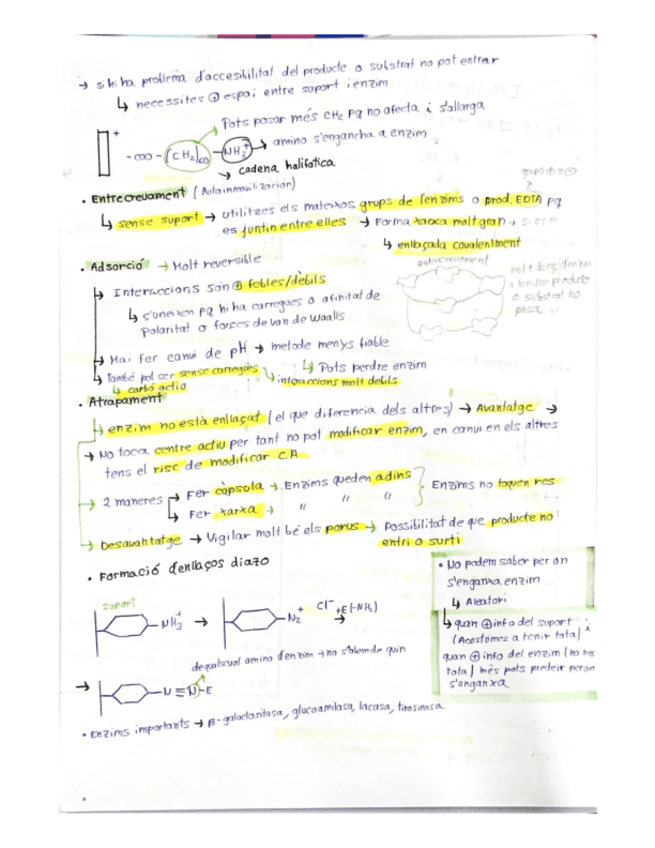 → si hi ha problema d'accesibilitat del producte o substrat no pot entrar
↳ necessites ⊕ espai entre suport i enzim
Pots posar més CH2 pq no afecta i s'allarga
+ -COO-(CH2) -NH3+ → amino s'engancha a enzim
→ cadena halifatica
• Entrecreuament (Autoinmovilización)
↳ sense suport → utilitzes els mateixos grups de l'enzims o prod. EDTA pq
es juntin entre elles → Forma xarxa molt gran →
↳ enllaçada covalentment
• Adsorció → Molt reversible
entrecreuament
→ Interaccions són ⊕ febles/dèbils
↳ s'uneixen pq hi ha carregues o afinitat de
polaritat o forces de van de Waalls
o substrat no
pasa
→ Mai fer canvi de pH → metode menys fiable
↳ Pots perdre enzim
↳ També pot ser sense carregues ↘ interaccions molt debils
↳ carbó actiu
• Atrapament
→ enzim no està enllaçat (el que diferencia dels altres) → Avantatge →
→ No toca centre actiu per tant no pot modificar enzim, en canvi en els altres
tens el risc de modificar C.A
→ 2 maneres → Fer càpsola → Enzims queden adins } Enzims no toquen res
↳ Fer xarxa → " " "
→ Desavantatge → Vigilar molt bé els porus → Possibilitat de que producte no
entri o surti
• Formació d'enllaços diazo
suport
-NH3+ → -N2+ Cl- +E(-NH2) →
de qualsevol amino d'enzim → no sabem de quin
→ -N≡N-E
• Enzims importants → β-galactosidasa, glucoamilasa, lacasa, tirosinasa
• No podem saber per on
s'enganxa enzim
↳ Aleatori
↳ quan ⊕ info del suport i
(Acostumes a tenir tota)
quan ⊕ info del enzim (no tens
tota) més pots predeir per on
s'enganxa